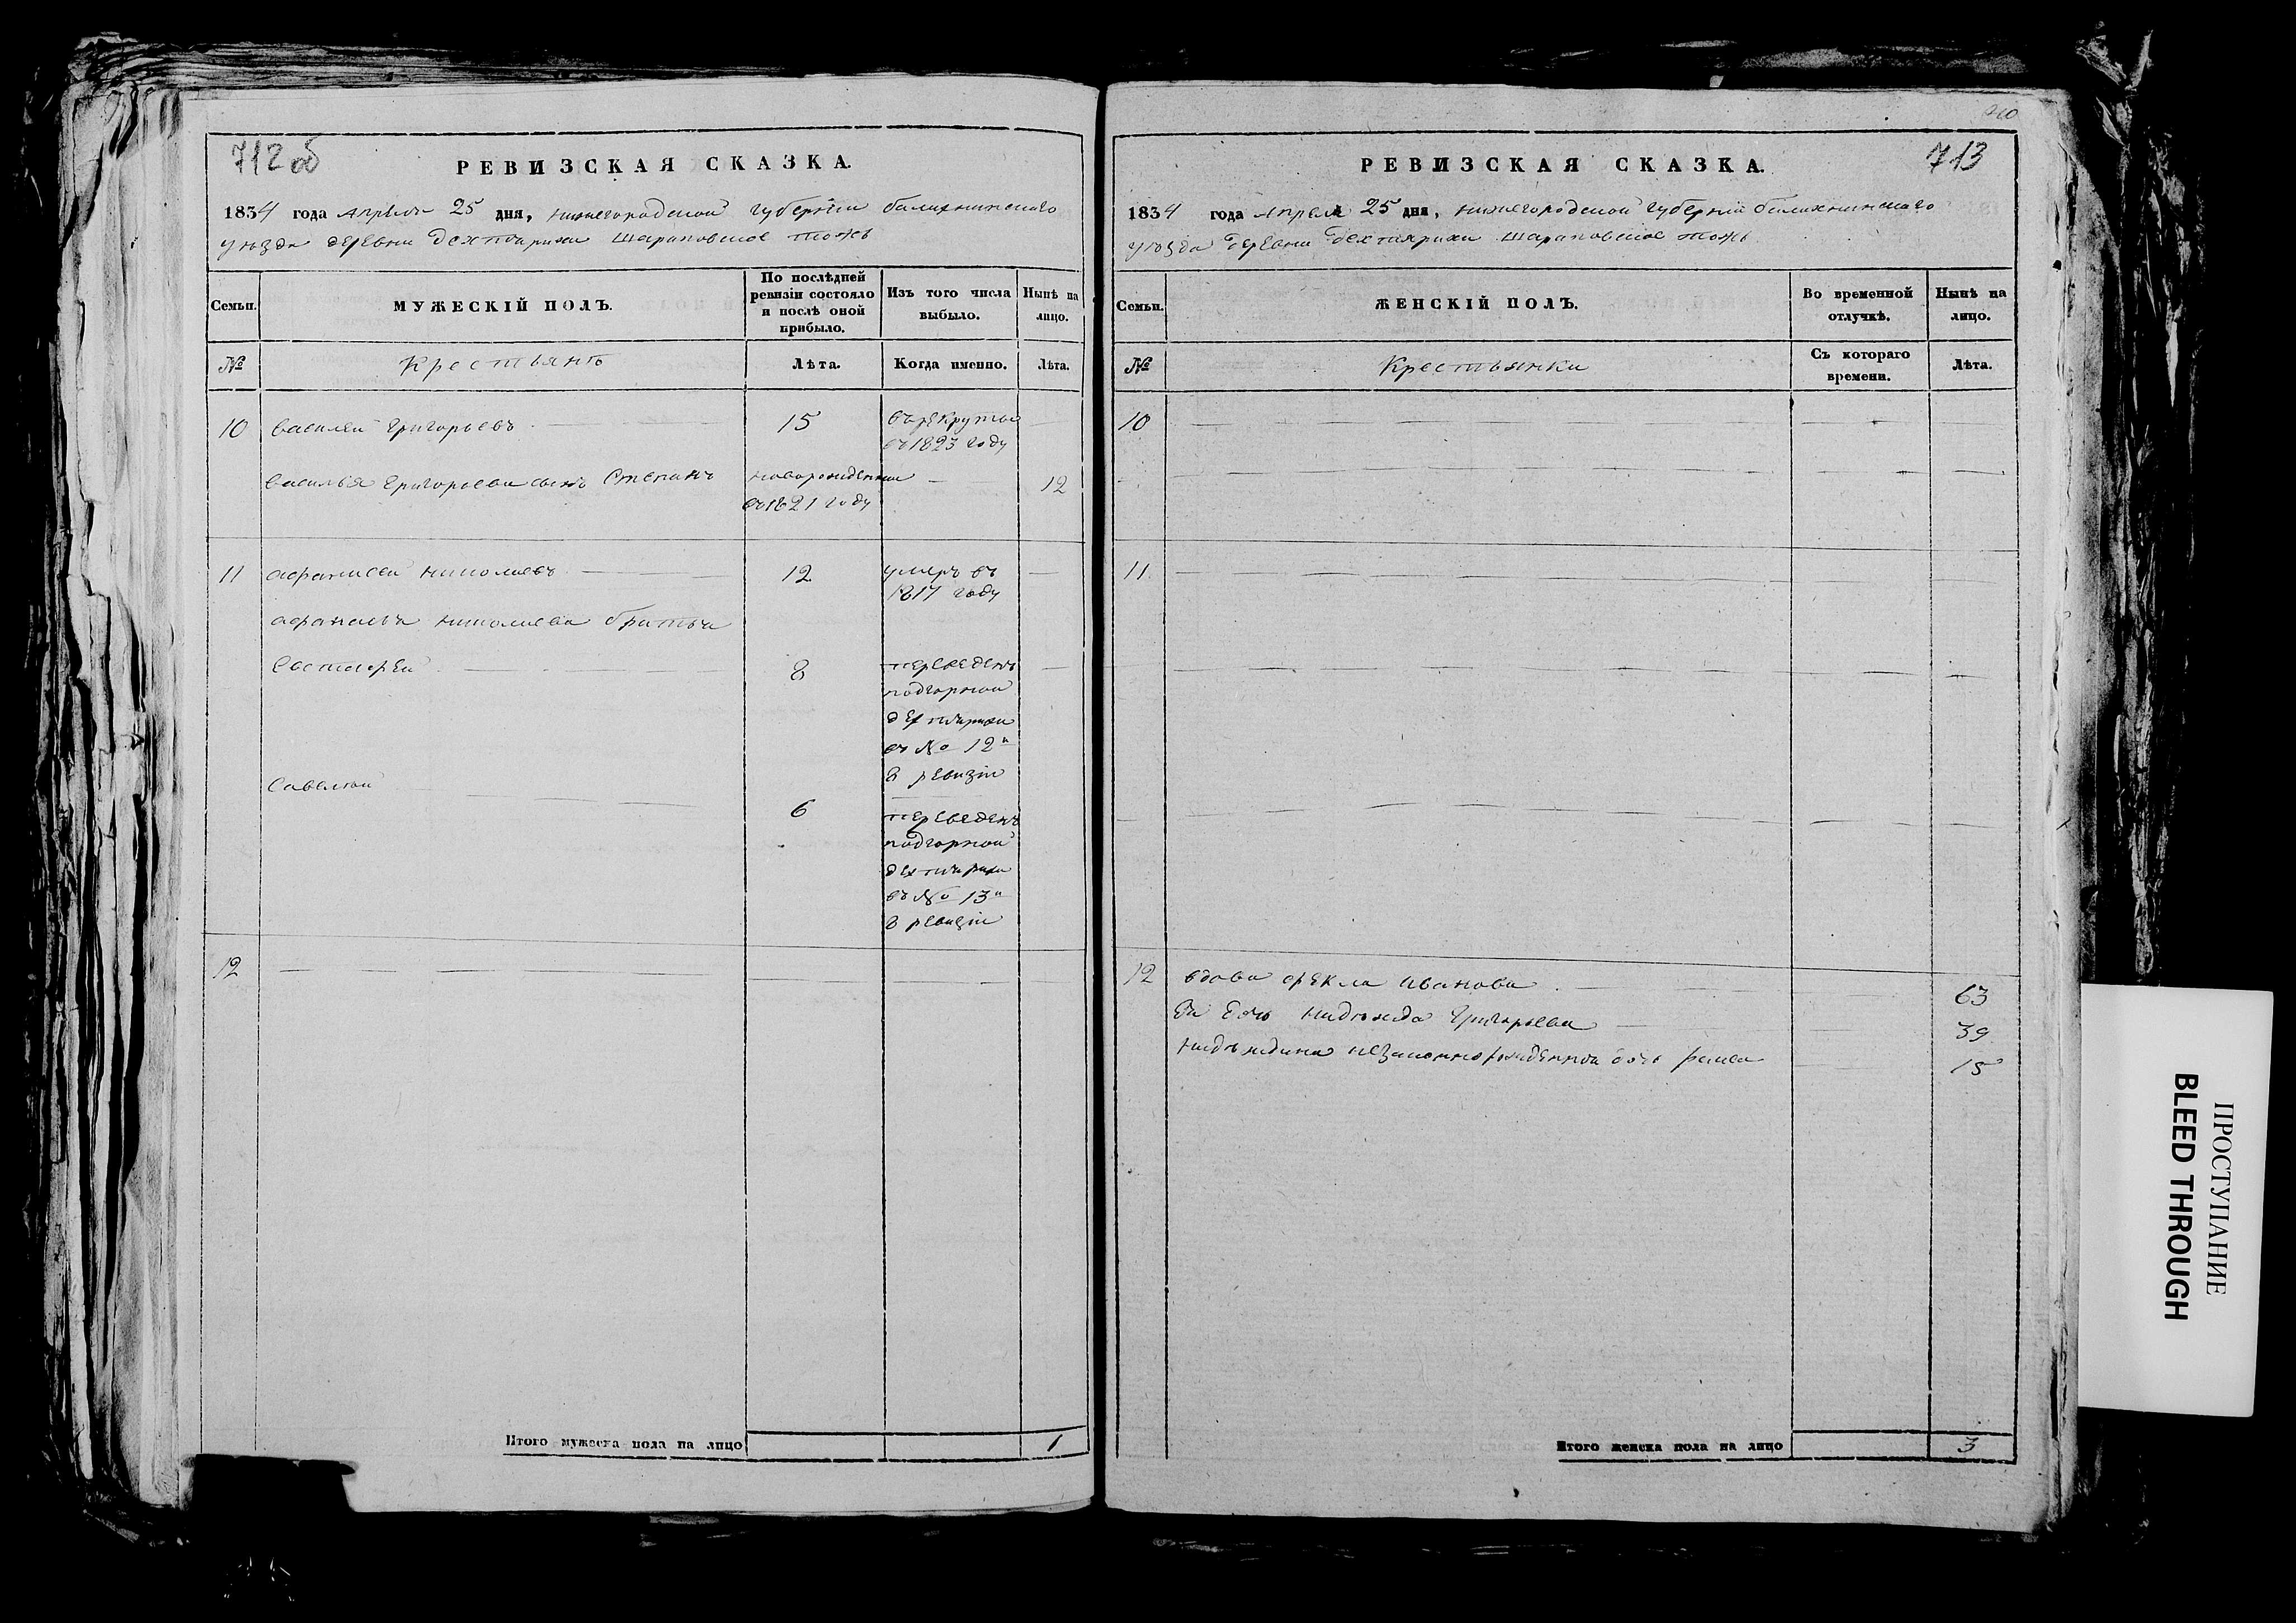 712 об
РЕВИЗСКАЯ СКАЗКА.
1834 года апреля 25 дня, нижегородской губернии балахнинского
уезда деревни дехтярихи шараповское тожъ
Семьи.
МУЖЕСКІЙ ПОЛЪ.
По послѣдней
ревизіи состояло
и послѣ оной
прибыло.
Изъ того числа
выбыло.
Нынѣ на
лицо.
№
Крестьянъ
Лѣта.
Когда именно.
Лѣта.
10 василеи григорьевъ 15 въ рекруты
въ 1823 году
василья григорьева сынъ Степанъ новорожденнои 12
въ 1821 году
11 афанасеи николаевъ 12 умеръ въ
1817 году
афанасья николаева братья
8 переведенъ
подгорнои
дехтярихи
въ № 12й
8 ревизіи
савелеи
6 переведенъ
подгорной
дехтярихи
въ № 13й
8 ревизіи
12
Итого мужеска пола на лицо 1
713
РЕВИЗСКАЯ СКАЗКА.
1834 года апреля 25 дня, нижегородской губерніи балахнинского
уезда деревни дехтярихи шараповское тожъ
Семьи.
ЖЕНСКІЙ ПОЛЪ.
Во временной
отлучкѣ.
Нынѣ на
лицо.
№
Крестьянки
Съ котораго
времени.
Лѣта.
10
11
12 вдова фекла иванова 63
Ея дочь надежда григорьева 39
надеждина незаконнорожденная дочь раиса 15
Итого женска пола на лицо 3
ПРОСТУПАНИЕ
BLEED THROUGH